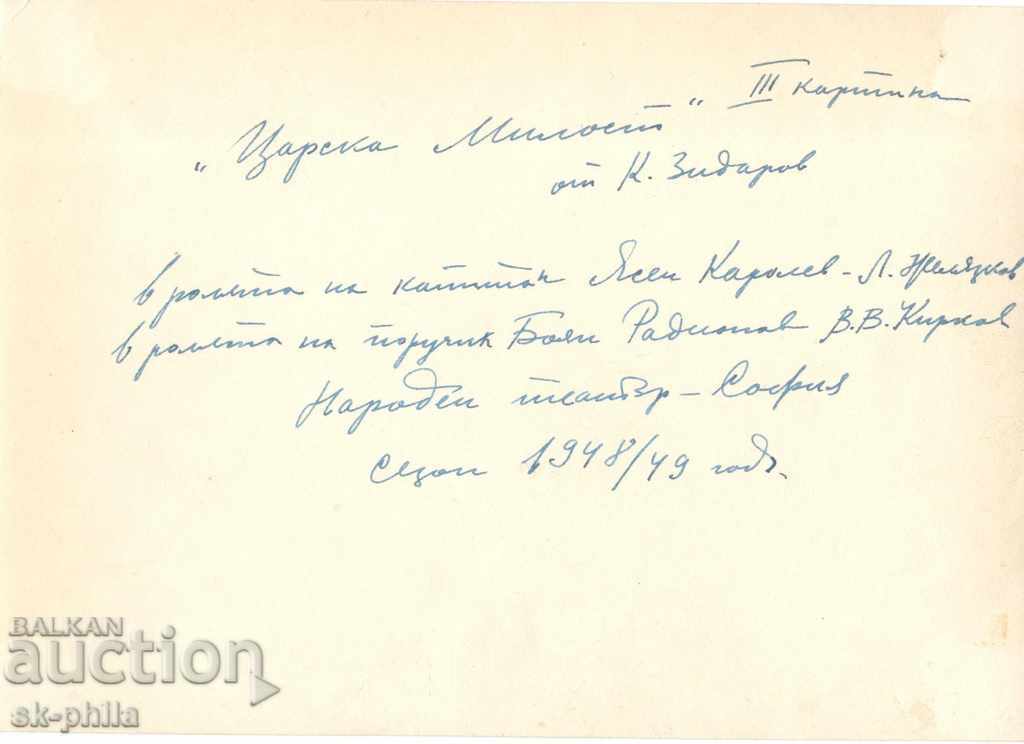 „Царска Милост“ III картина
от К. Зидаров
в ролята на капитан Ясен Каролев - Л. Желязков
в ролята на поручик Боян Радионов В.В. Кирков
Народен театър - София
сезон 1948/49 год.
BALKAN
auction
sk-phila